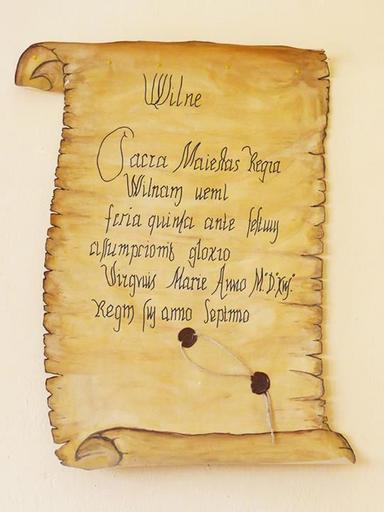 Wilne
Sacra Maiestas Regia
Wilnam uenit
feria quinta ante festum
assumpcionis glorio
Virginis Marie Anno M°D°XIIJ°
Regni suj anno Septimo